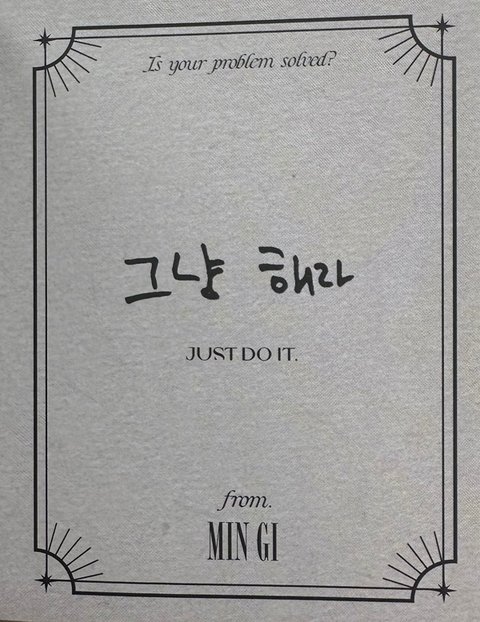 Is your problem solved?
그냥 해라
JUST DO IT.
from.
MIN GI